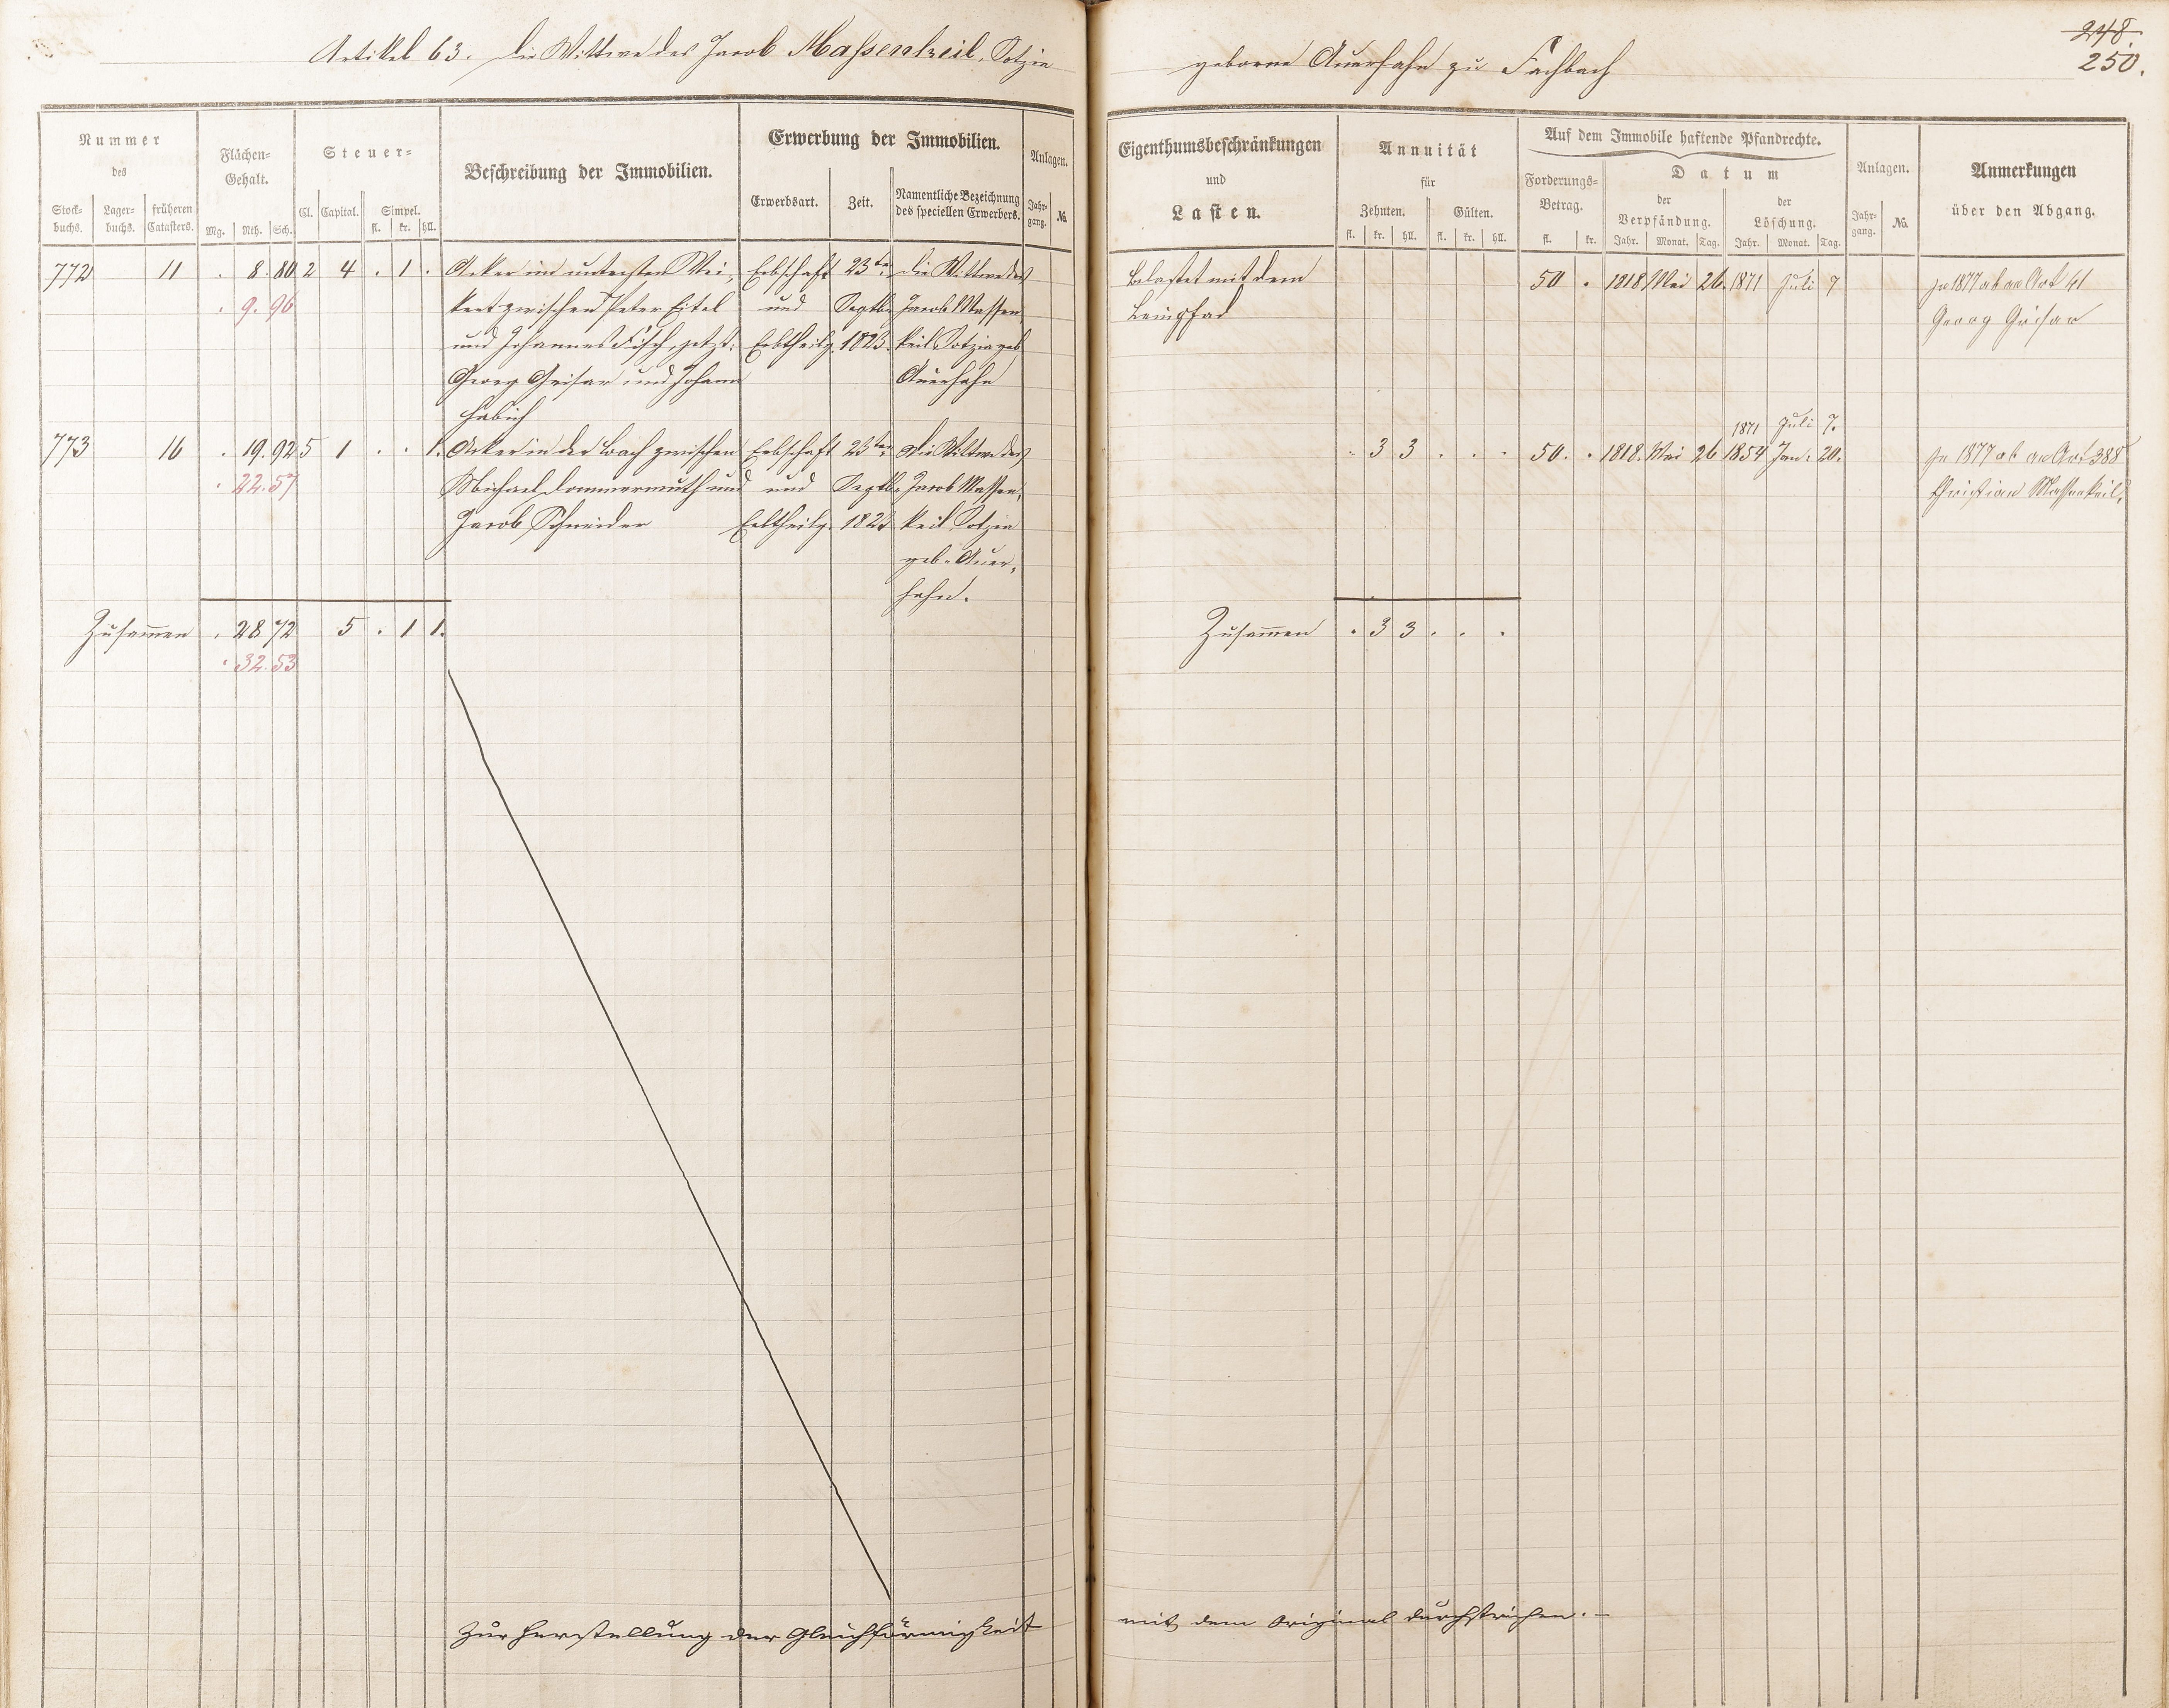 Artikel 63. Die Wittwe des Jacob Massenkeil, Sotzia
geborne Auerhahn zu Fachbach
248.
250.
Nummer
des
Stock-buchs. Lager-buchs. früheren Catasters.
Flächen-Gehalt.
Mg. Rth. Sch.
Steuer-
Cl. Capital. Simpel.
fl. kr. hll.
Beschreibung der Immobilien.
Erwerbung der Immobilien.
Erwerbsart. Zeit. Namentliche Bezeichnung des speciellen Erwerbers.
Anlagen.
Jahr-gang. No.
772 11 . 8. 80 2 4 . 1 . Acker im untersten Wei, Erbschaft 23ten die Wittwe des
. 9. 96 kert zwischen Peter Eitel und Septbr Jacob Massen
und Johannes Fisch, jetzt: Erbtheilg. 1823. keil Sotzia geb
Georg Geisar und Johann Auerhahn
Habich
773 16 . 19. 92 5 1 . . 1. Acker in der Bach zwischen Erbschaft 23ten die Wittwe des
. 22. 57 Michael Dommermuth und und Septbr Jacob Massen,
Jacob Schneider Erbtheilg. 1823 keil Sotzia
geb. Auer,
hahn.
Zusammen . 28 72 5 . 1 1.
. 32. 53
Zur Herstellung der Gleichförmigkeit
Eigenthumsbeschränkungen
und
Lasten.
Annuität
für
Zehnten. Gülten.
fl. kr. hll. fl. kr. hll.
Auf dem Immobile haftende Pfandrechte.
Forderungs-Betrag.
fl. kr.
Datum
der Verpfändung. der Löschung.
Jahr. Monat. Tag. Jahr. Monat. Tag.
Anlagen.
Jahr-gang. No.
Anmerkungen
über den Abgang.
Belastet mit dem 50 . 1818 Mai 26. 1871 Juli 7 In 1877 ab an Art 41
Leinpfad Georg Geisar
1871 Juli 7.
. 3 3 . . . 50. . 1818. Mai 26 1854 Jan. 20. In 1877 ab an Art 388
Christian Massenkeil.
Zusammen . 3 3 . . .
mit dem Original durchstrichen. –